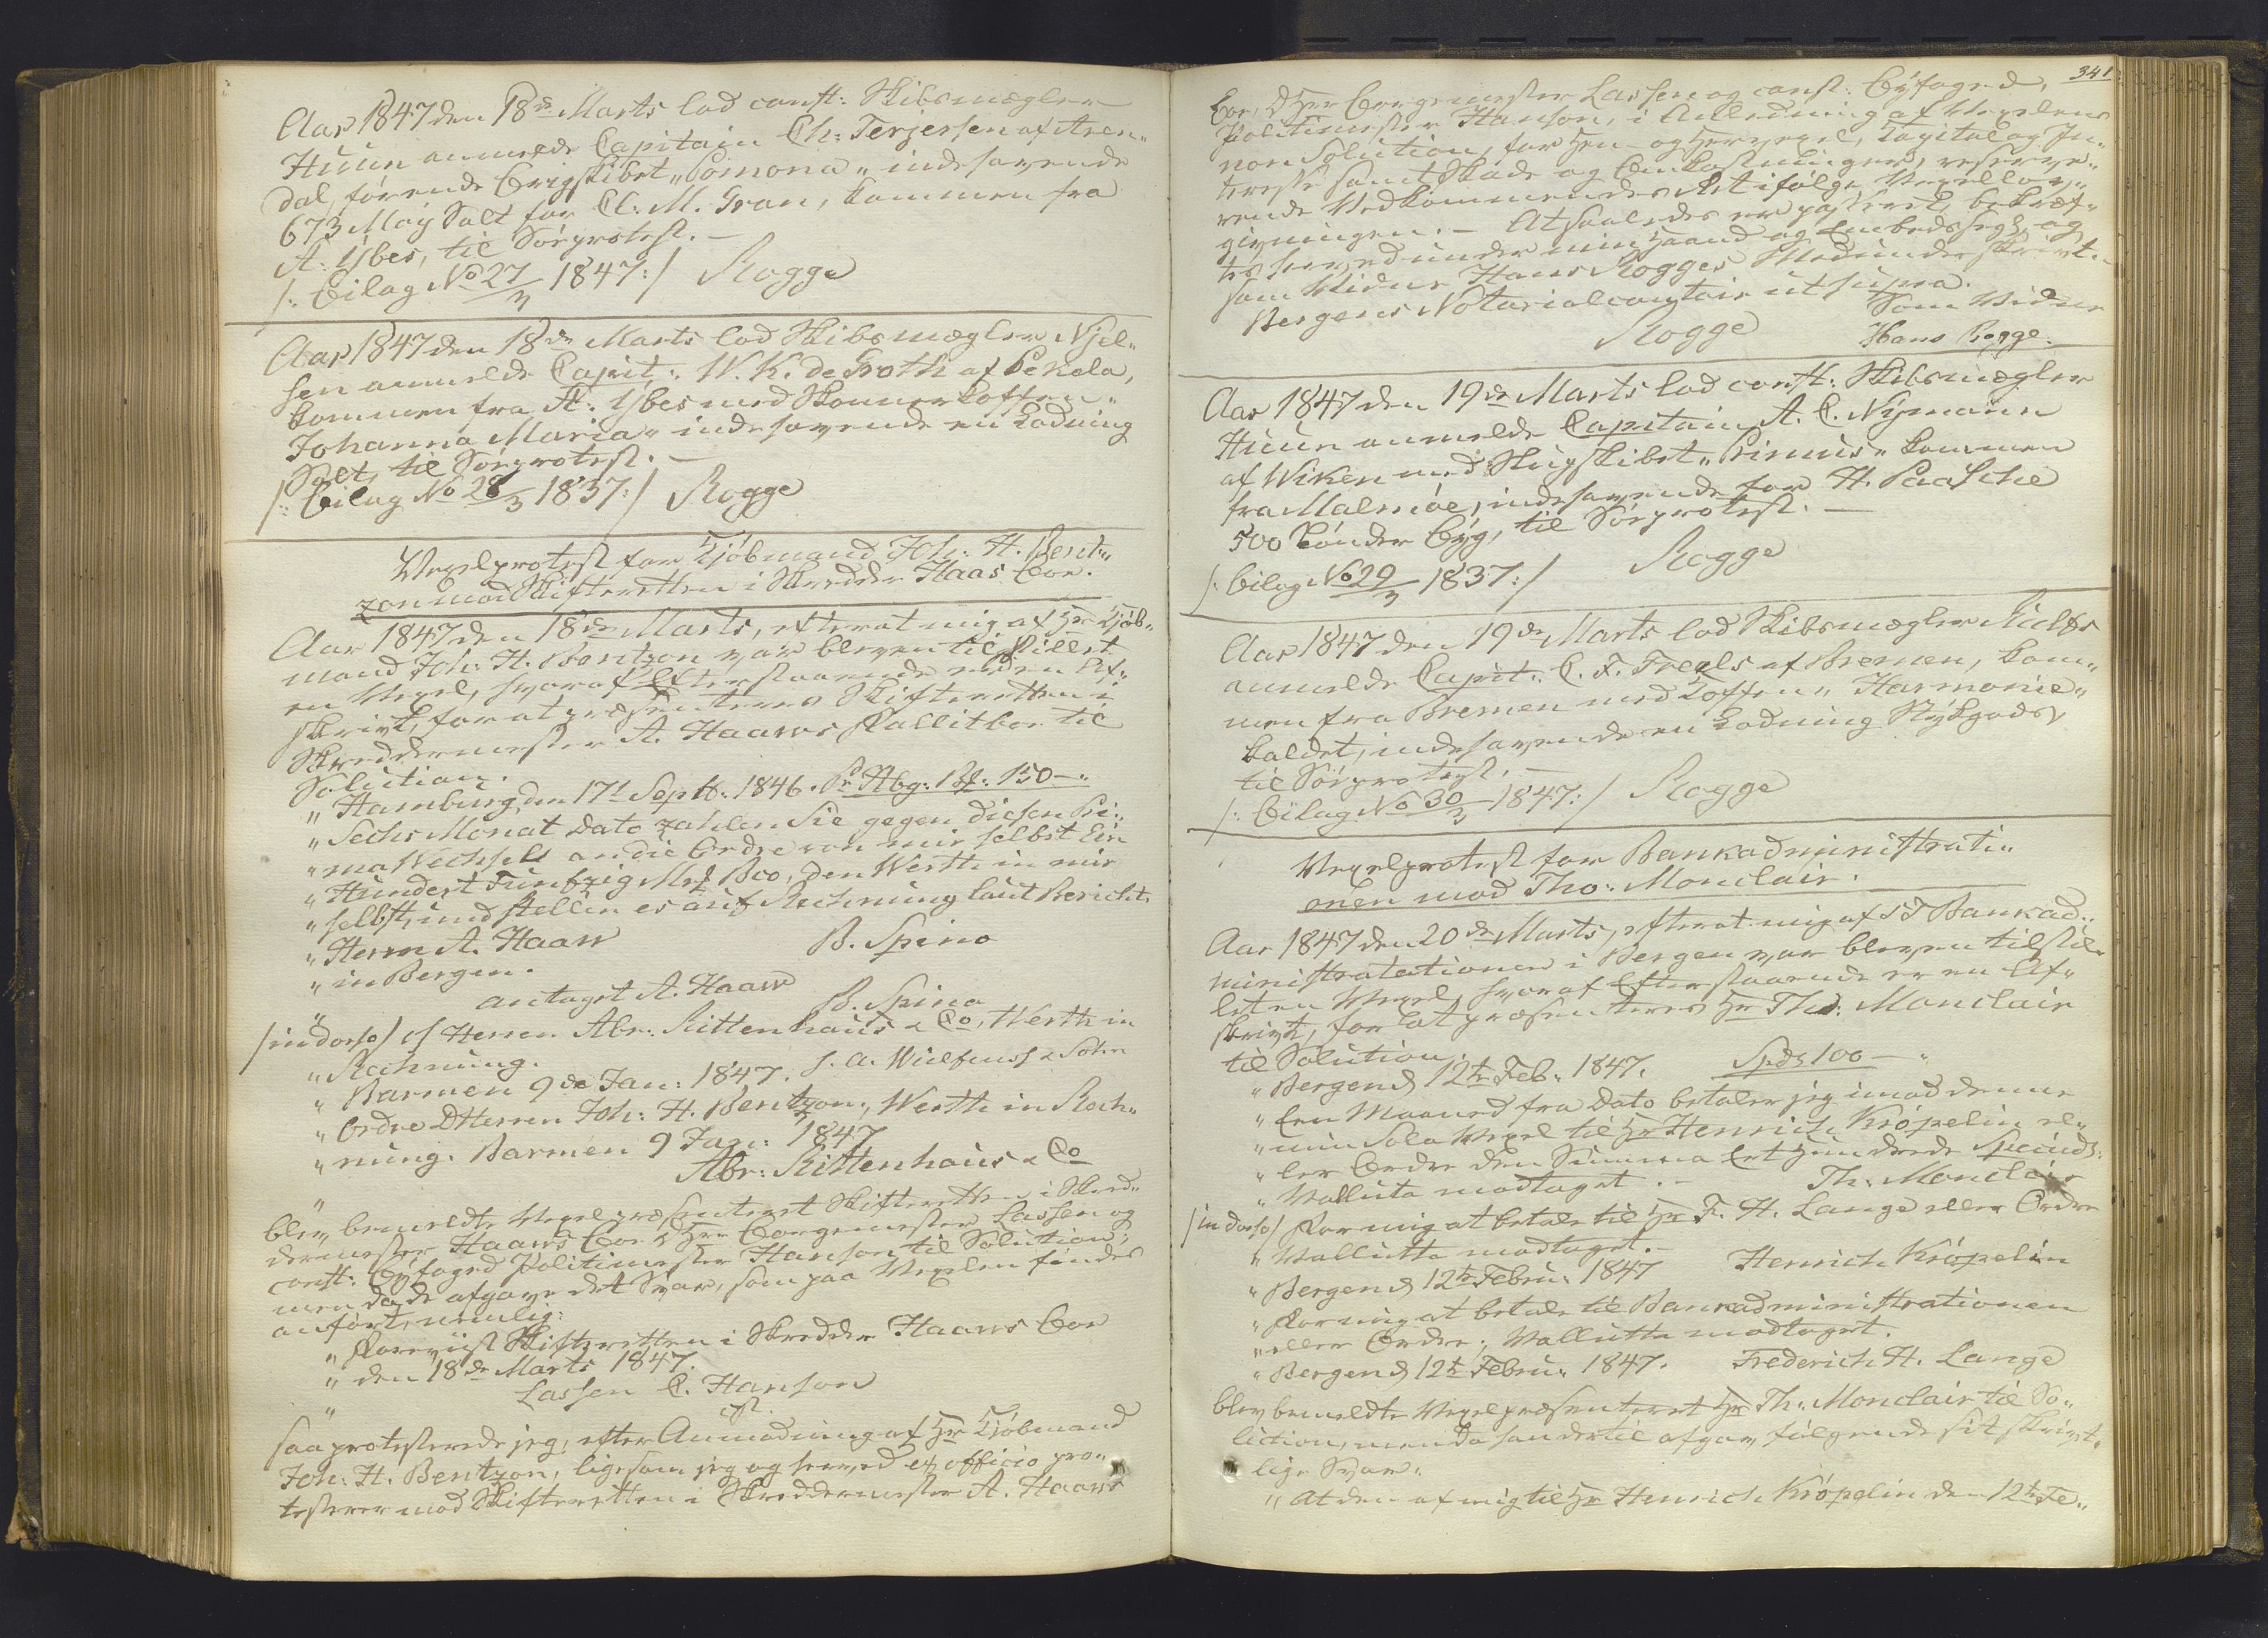 Aar 1847 den 18de Marts lod const: Skibsmægler
Huun anmelde Capitain Ch: Terjersen af Aren„
dal, förende Brigskibet „Pomona„ indehavende
673 Moÿ Salt for C: M. Gran, kommen fra
St: Ybes, til Söeprotest. —
/: Bilag No 27/3 1847:/ Rogge
Aar 1847 den 18de Marts lod Skibsmægler Njel„
sen anmelde Capit: W. K. de Groth af Pekela,
kommen fra St: Ybes med Skonnerkoffen „
Johanna Maria„ indehavende en Ladning
Salt, til Söeprotest. —
/: Bilag No 28/3 1837:/ Rogge
Vexelprotest for Kjöbmand Joh: H. Bent„
zon mod Skifteretten i Skrædder Haas Boe.
Aar 1847 den 18de Marts, efterat mig af Hr Kjöb„
mand Joh: H. Bentzon var bleven tilstillet
en Vexel, hvoraf Efterstaaende er en Af„
skrivt, for at præsenteres Skifteretten i
Skræddermester A. Haaws Fallitboe til
Solution.
„Hamburg, den 17t Septt: 1846. Pr Hbg: Bf: 150—„
„Sechs Monat dato zahlen Sie gegen diesen Pri„
„ma Wechsel an die Ordre von mir selbst Ein
„Hundert Funfzig Mrk Bco, den Werth in mir
„selbst, und stellen es auf Rechnung laut Bericht.
„Herrn A. Haaw B. Spino
„in Bergen.
antaget A. Haaw
„ B. Spino
/in dorso/ Herren Abr: Rittenhaus & Co, Werth in
„Rechnung.
„Barmen 9de Jan: 1847. & Sohn
„Ordre DHerren Joh: H. Bentzon, Werth in Rech„
„nung. Barmen 9 Jan: 1847
„ Abr: Rittenhaus & Co
blev bemeldte Vexel præsenteret Skifteretten i Skræd„
dermester Haaws Boe, Hrr Borgemester Lassen og
const: Byfoged Politimester Hanson til Solution;
men da de afgave det Svar, som paa Vexelen findes
anfört, nemlig:
„Foreviist Skifteretten i Skrædder Haaws Boe
„den 18de Marts 1847.
„ Lassen C. Hanson
cst.
saa protesterede jeg, efter Anmodning af Hr Kjöbmand
Joh: H. Bentzon, ligesom jeg og herved ex officio pro„
testerer mod Skifteretten i Skræddermester A. Haaws
341
Boe, DHrr Borgemester Lassen og const: Byfoged,
Politimester Hanson, i Anledning af Vexelens
non Solution, for Hen- og Hervexel, Capital og In„
teresse samt Skade og Omkostninger, reserve„
rende Vedkommendes Ret ifölge Vexellov„
givningen. — At saaledes er passeret, bekræf„
tes herved under min Haand og Embedssegl, og
som Vidne Hans Rogges Medunderskrivt.
Bergens Notarialcontoir ut supra.
Rogge Som Vidne
Hans Rogge.
Aar 1847 den 19de Marts lod const: Skibsmægler
Huun anmelde Capitain A. C. Nÿmann
af Wiken med Slupskibet „Primus„ kommen
fra Malmöe, indehavende for H. Paasche
500 Tönder Byg, til Söeprotest. —
/: Bilag No 29/3 1837:/ Rogge
Aar 1847 den 19de Marts lod Skibsmægler Rulffs
anmelde Capit: C. F. Freels af Bremen, kom„
men fra Bremen med Koffen „Harmonie„
kaldet, indehavende en Ladning Stykgods
til Söeprotest. —
/: Bilag No 30/3 1847:/ Rogge
Vexelprotest for Bankadministrati„
onen mod Tho: Monclair.
Aar 1847 den 20de Marts, efterat mig af ST Bankad„
ministratationen i Bergen var bleven tilstil„
let en Vexel, hvoraf Efterstaaende er en Af„
skrivt, for at præsenteres Hr Tho: Monclair
til Solution.
„Bergen d 12te Feb: 1847. Spd 100—„
„Een Maaned fra Dato betaler jeg imod denne
„min Sola Vexel til Hr Henrich Kröpelin el„
„ler Ordre den Summa Et Hundrede Speciedr:
„Valluta modtaget. — Th: Monclair
/in dorso/ For mig at betale til Hr F. H. Lange eller Ordre
„Vallutta modtaget. —
„Bergen d 12te Febru: 1847 Henrich Kröpelin
„For mig at betale til Bankadministrationen
„eller Ordre; Vallutta modtaget.
„Bergen d 12te Febru: 1847. Frederich H. Lange
blev bemeldte Vexel præsenteret Hr Th: Monclair til So„
lution, men da han dertil afgav fölgende sit skrivt„
lige Svar:
„At den af mig til Hr Henrich Kröpelin den 12te Fe„